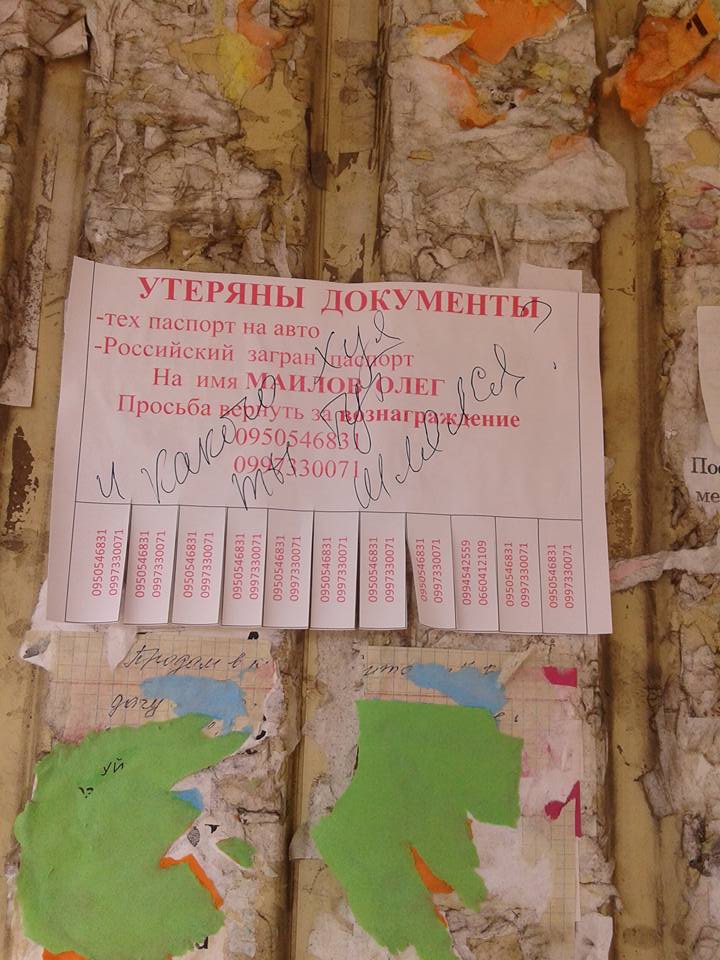 УТЕРЯНЫ ДОКУМЕНТЫ
-тех паспорт на авто
-Российский загран паспорт
На имя МАИЛОВ ОЛЕГ
Просьба вернуть за вознаграждение
0950546831
0997330071
и какого хуя
ты тут шлялся?
0950546831
0997330071
0950546831
0997330071
0950546831
0997330071
0950546831
0997330071
0950546831
0997330071
0950546831
0997330071
0950546831
0997330071
0950546831
0997330071
0994542559
0660412109
0950546831
0997330071
0950546831
0997330071
Продам в
дачу
уй
По
ме